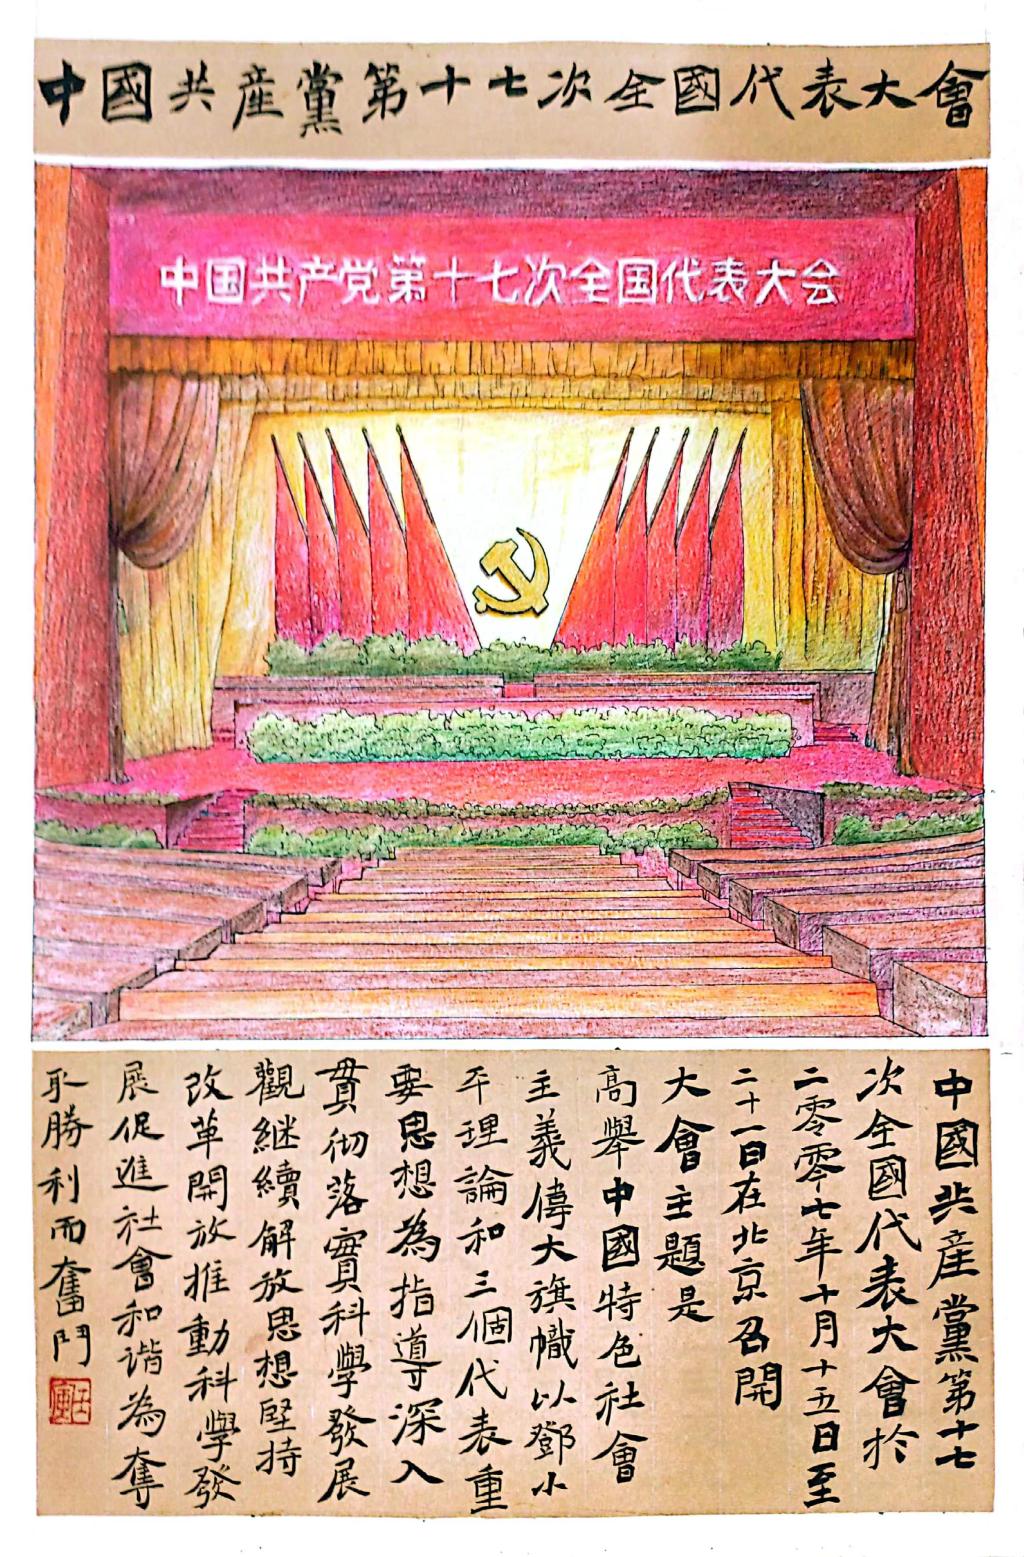 中國共産黨第十七次全國代表大會
中国共产党第十七次全国代表大会
中國共産黨第十七
次全國代表大會於
二零零七年十月十五日至
二十一日在北京召開
大會主題是
高舉中國特色社會
主義偉大旗幟以鄧小
平理論和三個代表重
要思想為指導深入
貫彻落實科學發展
觀继續解放思想堅持
改革開放推動科學發
展促進社會和谐為奪
取勝利而奮鬥